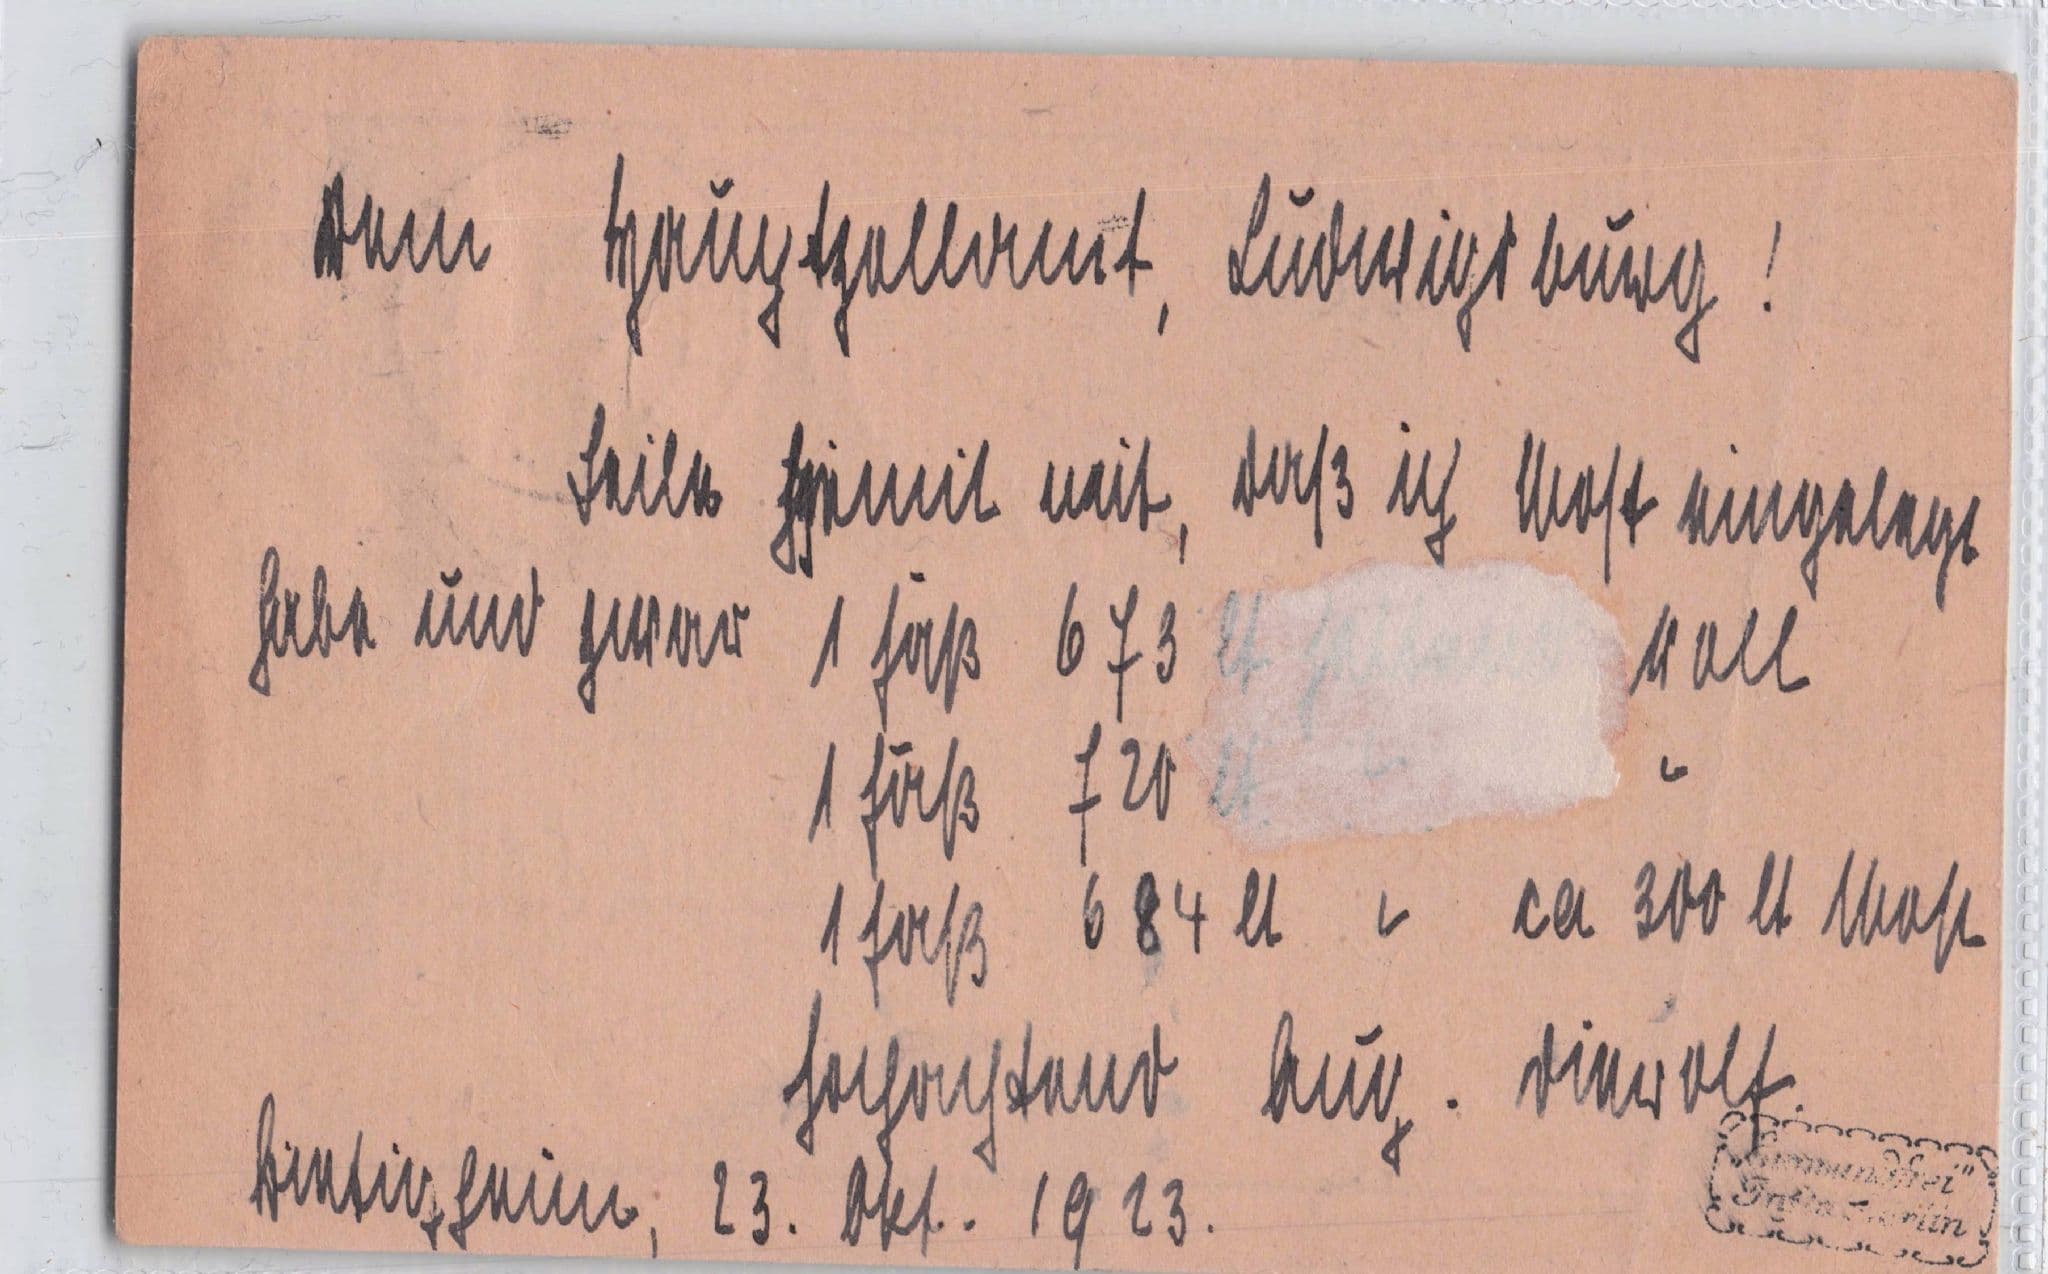 Dem Hauptzollamt, Ludwigsburg!
Teile hiemit mit, daß ich Most eingelegt
habe und zwar 1 Faß 673 lt voll
1 Faß 720 lt " "
1 Faß 684 lt " ca 300 lt Most
Hochachtend Aug.
Bietigheim, 23. Okt. 1923.